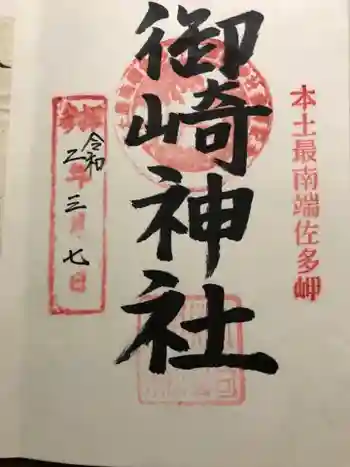 本土最南端佐多岬
御崎神社
令和
二年三月七日